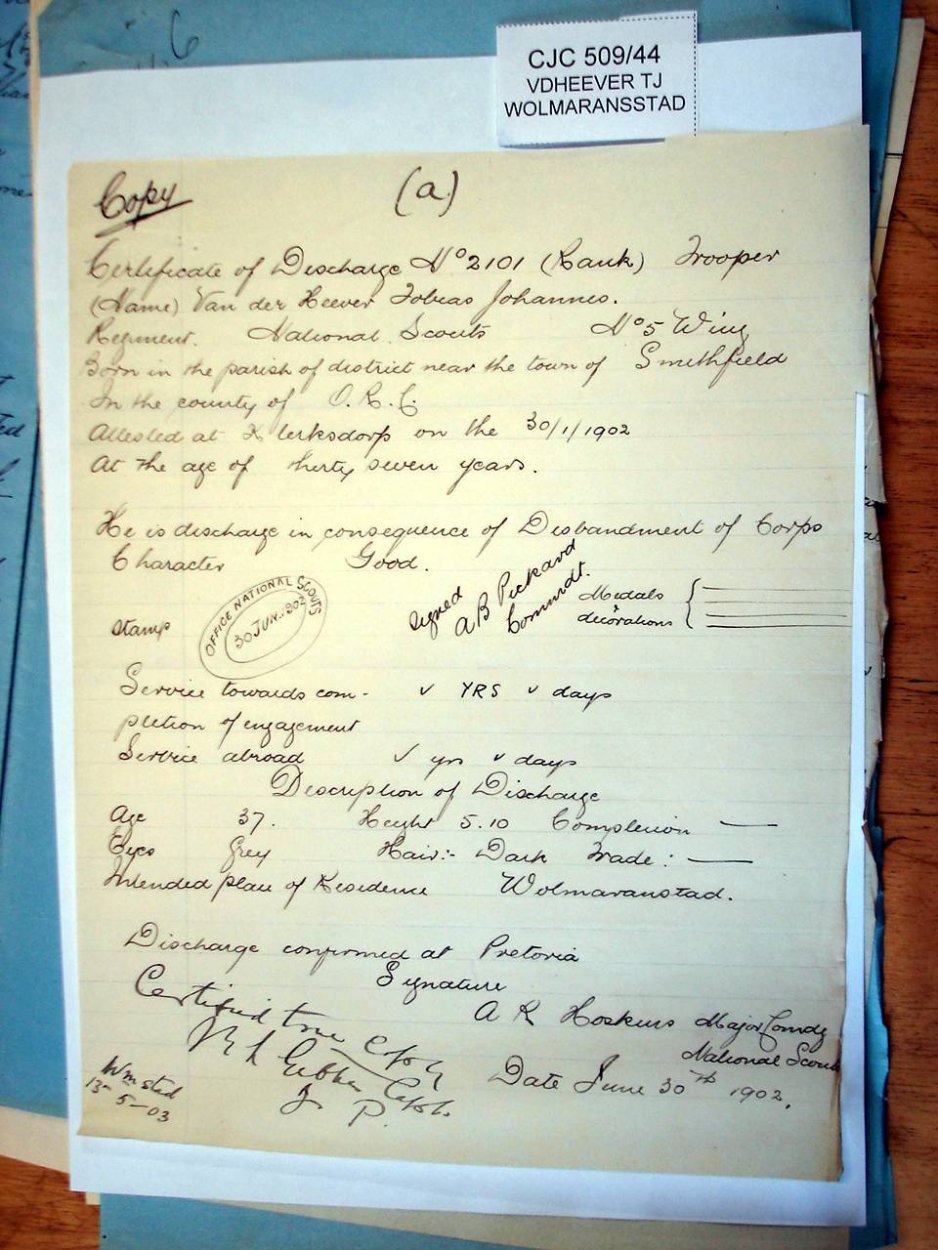 6
CJC 509/44
VDHEEVER TJ
WOLMARANSSTAD
Copy
(a)
Certificate of Discharge No 2101 (Rank) Trooper
(Name) Van der Heever Tobias Johannes.
Regiment. National Scouts No 5 Wing
Born in the parish of district near the town of Smithfield
In the county of O.R.C.
Attested at Klerksdorp on the 30/1/1902
At the age of thirty seven years.
He is discharge in consequence of Disbandment of Corps
Character Good.
Stamp
OFFICE NATIONAL SCOUTS
30 JUN. 902
signed
A B Pickard
Commdt.
Medals
decorations
Service towards com- v YRS v days
pletion of engagement
Service abroad v yrs v days
Description of Discharge
Age 37. Height 5.10 Complexion —
Eyes Grey Hair:- Dark Trade: —
Intended place of Residence Wolmaranstad.
Discharge confirmed at Pretoria
Signature
A R Hoskins Major Comdg
National Scouts
Date June 30th 1902.
Certified true Copy
Capt.
J. P.
Wmstad
13-5-03